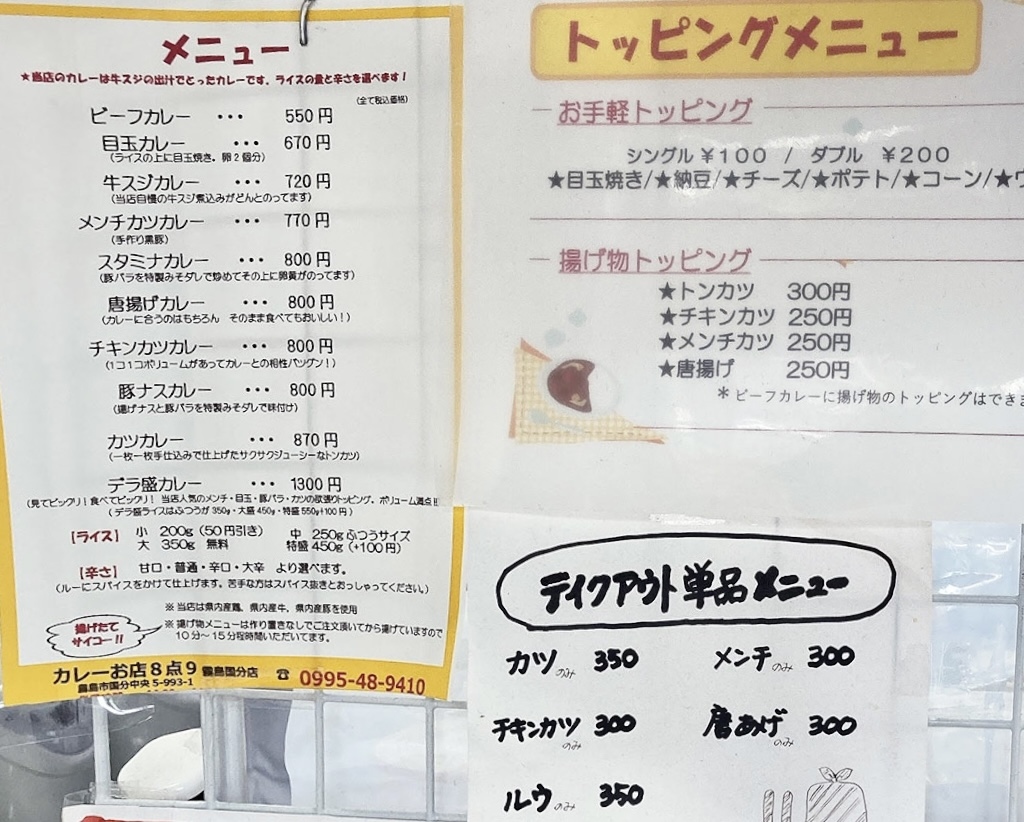 メニュー
★当店のカレーは牛スジの出汁でとったカレーです。ライスの量と辛さを選べます！
(全て税込価格)
ビーフカレー ・・・ 550円
目玉カレー ・・・ 670円
(ライスの上に目玉焼き。卵2個分)
牛スジカレー ・・・ 720円
(当店自慢の牛スジ煮込みがどんとのってます)
メンチカツカレー ・・・ 770円
(手作り黒豚)
スタミナカレー ・・・ 800円
(豚バラを特製みそダレで炒めてその上に卵黄がのってます)
唐揚げカレー ・・・ 800円
(カレーに合うのはもちろん そのまま食べてもおいしい！)
チキンカツカレー ・・・ 800円
(1コ1コボリュームがあってカレーとの相性バツグン！)
豚ナスカレー ・・・ 800円
(揚げナスと豚バラを特製みそダレで味付け)
カツカレー ・・・ 870円
(一枚一枚手仕込みで仕上げたサクサクジューシーなトンカツ)
デラ盛カレー ・・・ 1300円
(見てビックリ！食べてビックリ！ 当店人気のメンチ・目玉・豚バラ・カツの欲張りトッピング。ボリューム満点!!
(デラ盛ライスはふつうが350g・大盛450g・特盛550g+100円)
【ライス】 小 200g (50円引き) 中 250gふつうサイズ
大 350g 無料 特盛450g (+100円)
【辛さ】 甘口・普通・辛口・大辛 より選べます。
(ルーにスパイスをかけて仕上げます。苦手な方はスパイス抜きとおっしゃってください)
※ 当店は県内産鶏、県内産牛、県内産豚を使用
揚げたて
サイコー!!
※ 揚げ物メニューは作り置きなしでご注文頂いてから揚げていますので
10分～15分程時間いただいてます。
カレーお店8点9 霧島国分店 ☎ 0995-48-9410
霧島市国分中央5-993-1
トッピングメニュー
お手軽トッピング
シングル ￥100 / ダブル ￥200
★目玉焼き/★納豆/★チーズ/★ポテト/★コーン/★ウ
揚げ物トッピング
★トンカツ 300円
★チキンカツ 250円
★メンチカツ 250円
★唐揚げ 250円
＊ビーフカレーに揚げ物のトッピングはできま
テイクアウト単品メニュー
カツのみ 350 メンチのみ 300
チキンカツのみ 300 唐あげのみ 300
ルウのみ 350